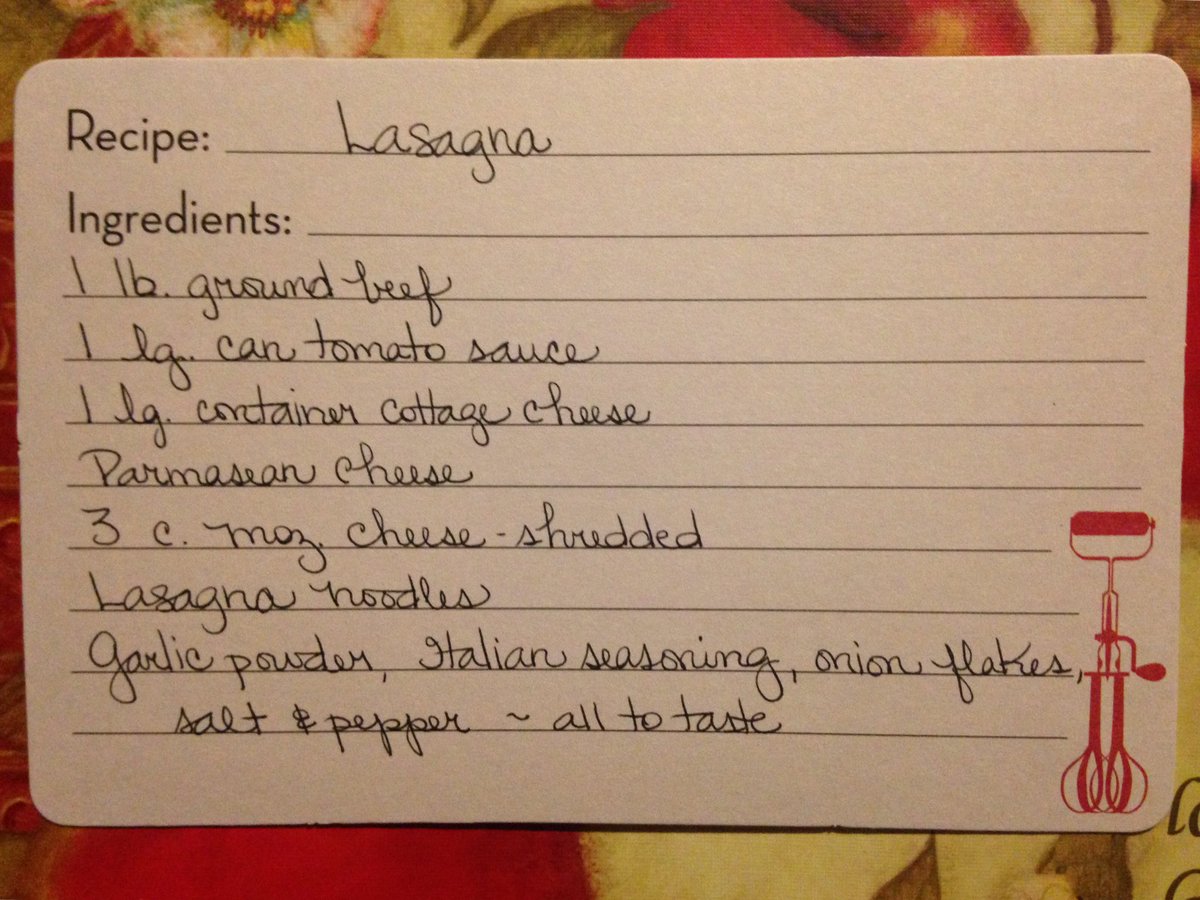 Recipe: Lasagna
Ingredients:
1 lb. ground beef
1 lg. can tomato sauce
1 lg. container cottage cheese
Parmasean cheese
3 c. moz. cheese - shredded
Lasagna noodles
Garlic powder, Italian seasoning, onion flakes,
salt & pepper ~ all to taste